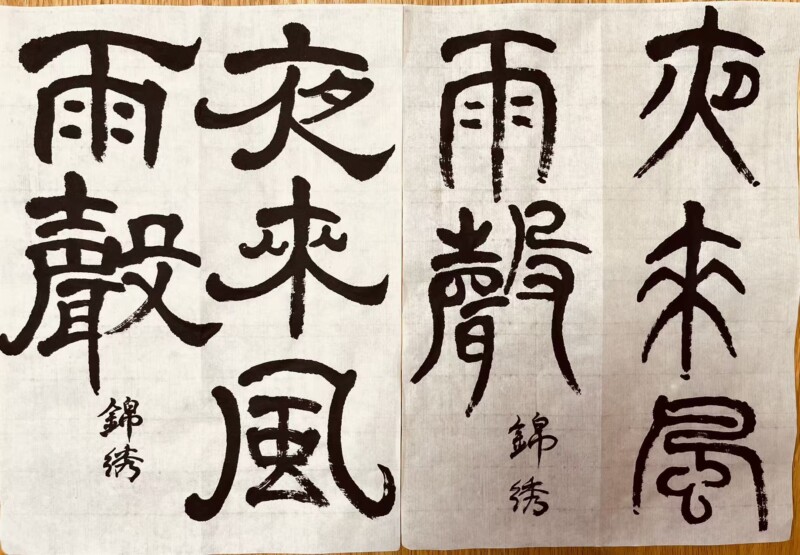 夜來風
雨聲
錦綉
夜來風
雨聲
錦綉